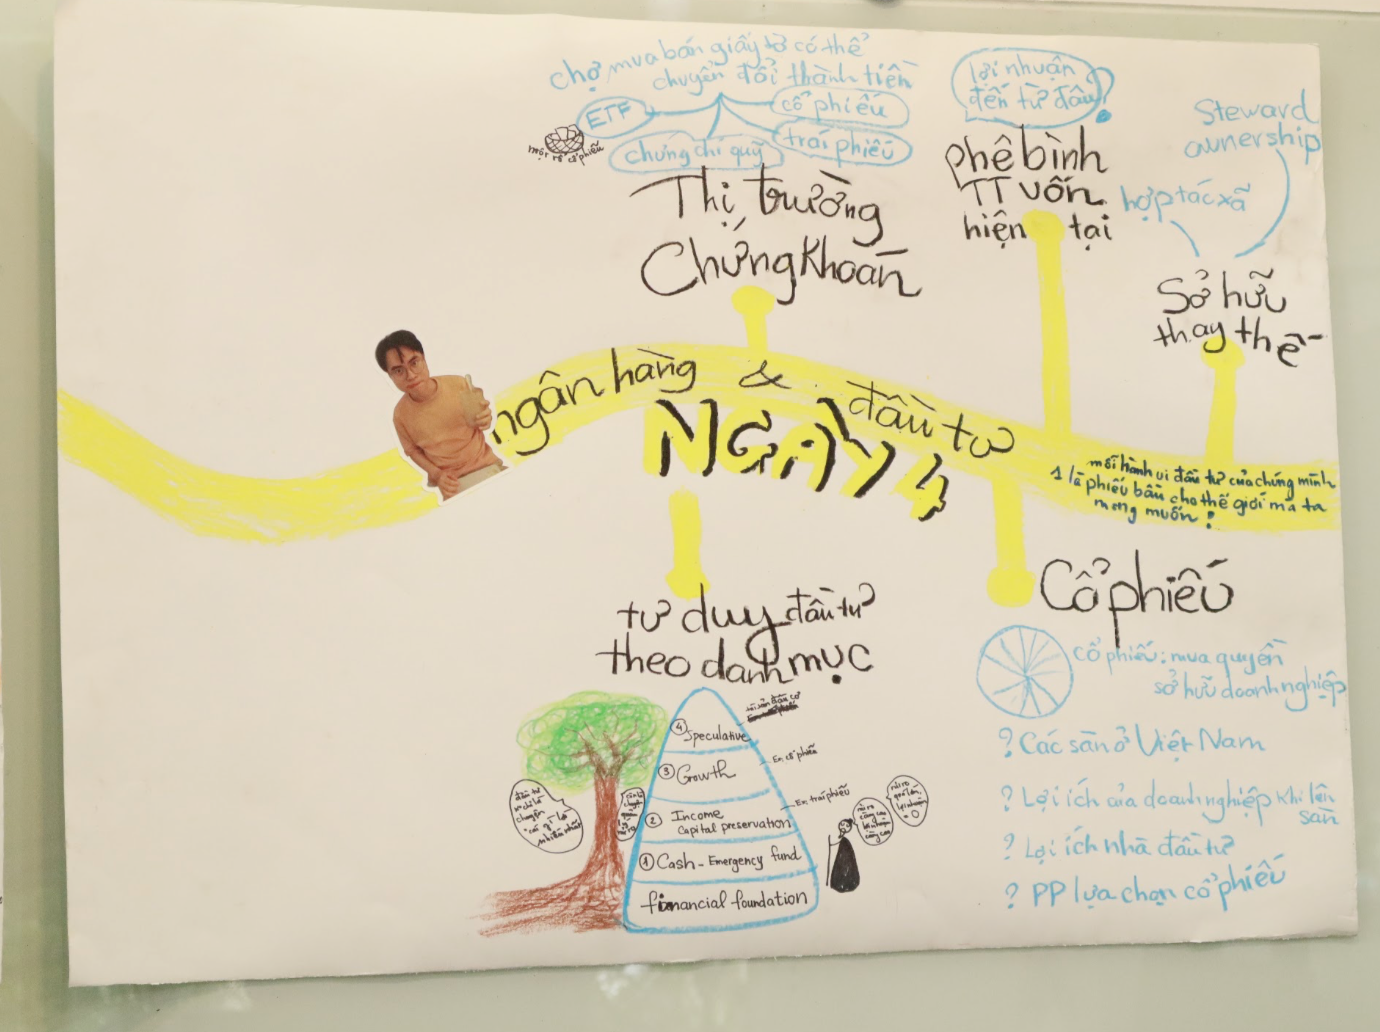 chợ mua bán giấy tờ có thể
chuyển đổi thành tiền
ETF
cổ phiếu
trái phiếu
chứng chỉ quỹ
một rổ cổ phiếu
Thị trường
Chứng Khoán
lợi nhuận
đến từ đâu?
phê bình
TT vốn
hiện tại
Steward
ownership
hợp tác xã
Sở hữu
thay thế
ngân hàng & đầu tư
NGÀY 4
mỗi hành vi đầu tư của chúng mình
là 1 phiếu bầu cho thế giới mà ta
mong muốn!
tư duy đầu tư
theo danh mục
④ Speculative
③ Growth
Ex, cổ phiếu
② Income
Capital preservation
Ex, trái phiếu
① Cash - Emergency fund
financial foundation
đầu tư
chuyện
"cái gì lời
nhiều nhất"
rủi ro
càng cao
lợi nhuận
càng cao
rủi ro
quá lớn,
lợi nhuận
= 0
Cổ phiếu
Cổ phiếu: mua quyền
sở hữu doanh nghiệp
? Các sàn ở Việt Nam
? Lợi ích của doanh nghiệp khi lên
sàn
? Lợi ích nhà đầu tư
? PP lựa chọn cổ phiếu